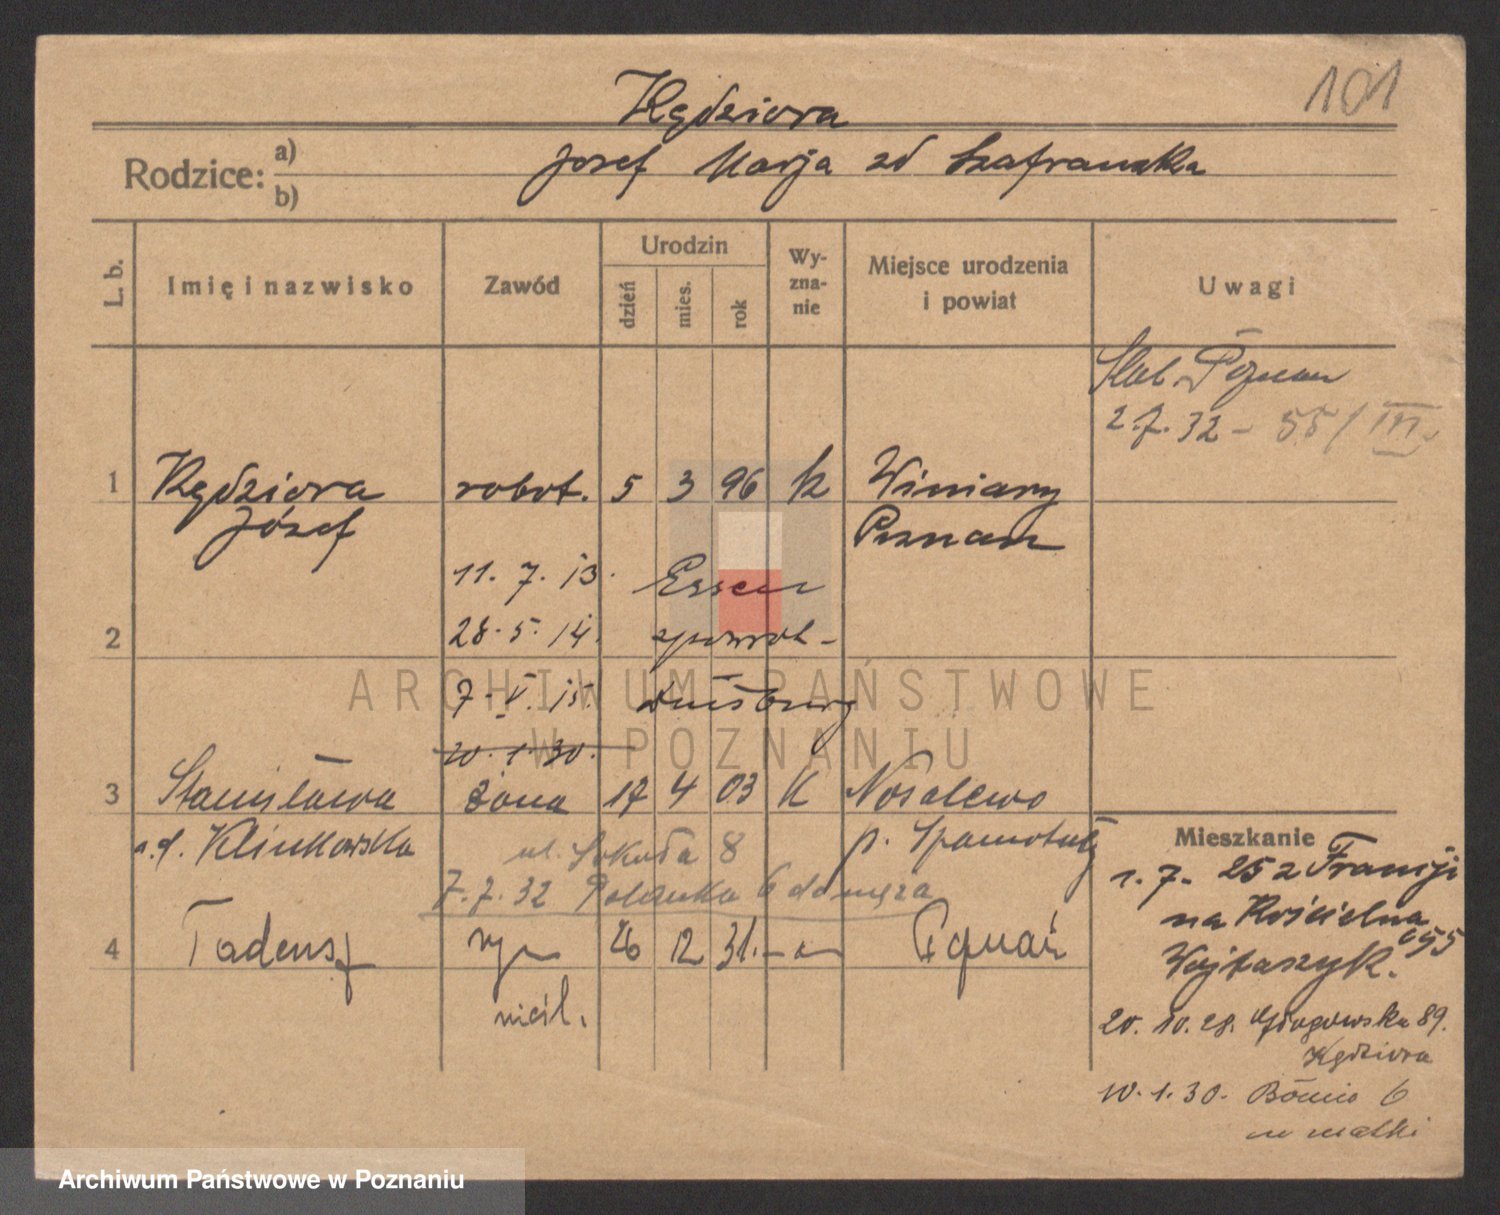 101
Kędziora
Rodzice: a) b)
Józef Marja zd Szafrańska
L. b.
Imię i nazwisko
Zawód
Urodzin
dzień
mies.
rok
Wy-
zna-
nie
Miejsce urodzenia
i powiat
Uwagi
Poznań
2.7.32 - 55/III
1 Kędziora robot. 5 3 96 k Winiary
Józef Poznań
11. 7. 13. Essen
2 28. 5. 14.
7. V. 15. Duisburg
20. 1. 30.
3 Stanisława żona 17 4 03 K Nosalewo
z.d. Klinkowska p. Szamotuły
ul. Sokoła 8
7.7.32 Polanka 6 do męża
4 Tadeusz syn 26 12 31. Poznań
nieśl.
Mieszkanie
1. 7. 25 z Francji
na Kościelna
Wojtaszyk.
20. 10. 28. Głogowska 89.
Kędziora
10. 1. 30. 6
matki
ARCHIWUM PAŃSTWOWE
W POZNANIU
Archiwum Państwowe w Poznaniu